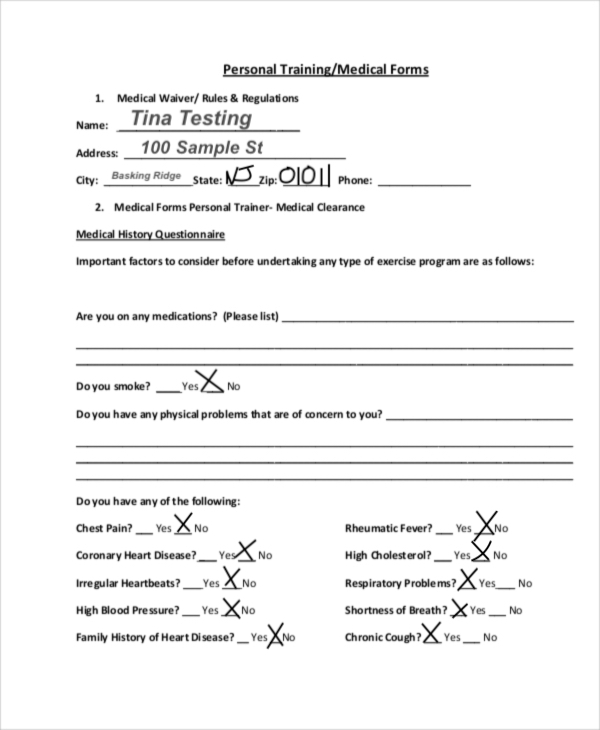 Personal Training/Medical Forms
1. Medical Waiver/ Rules & Regulations
Name: Tina Testing
Address: 100 Sample St
City: Basking Ridge State: NJ Zip: 01011 Phone: ____
2. Medical Forms Personal Trainer- Medical Clearance
Medical History Questionnaire
Important factors to consider before undertaking any type of exercise program are as follows:
Are you on any medications? (Please list) ____
Do you smoke? ___ Yes X No
Do you have any physical problems that are of concern to you? ____
Do you have any of the following:
Chest Pain? ___ Yes X No
Coronary Heart Disease? ___ Yes X No
Irregular Heartbeats? ___ Yes X No
High Blood Pressure? ___ Yes X No
Family History of Heart Disease? ___ Yes X No
Rheumatic Fever? ___ Yes X No
High Cholesterol? ___ Yes X No
Respiratory Problems? X Yes ___ No
Shortness of Breath? X Yes ___ No
Chronic Cough? X Yes ___ No